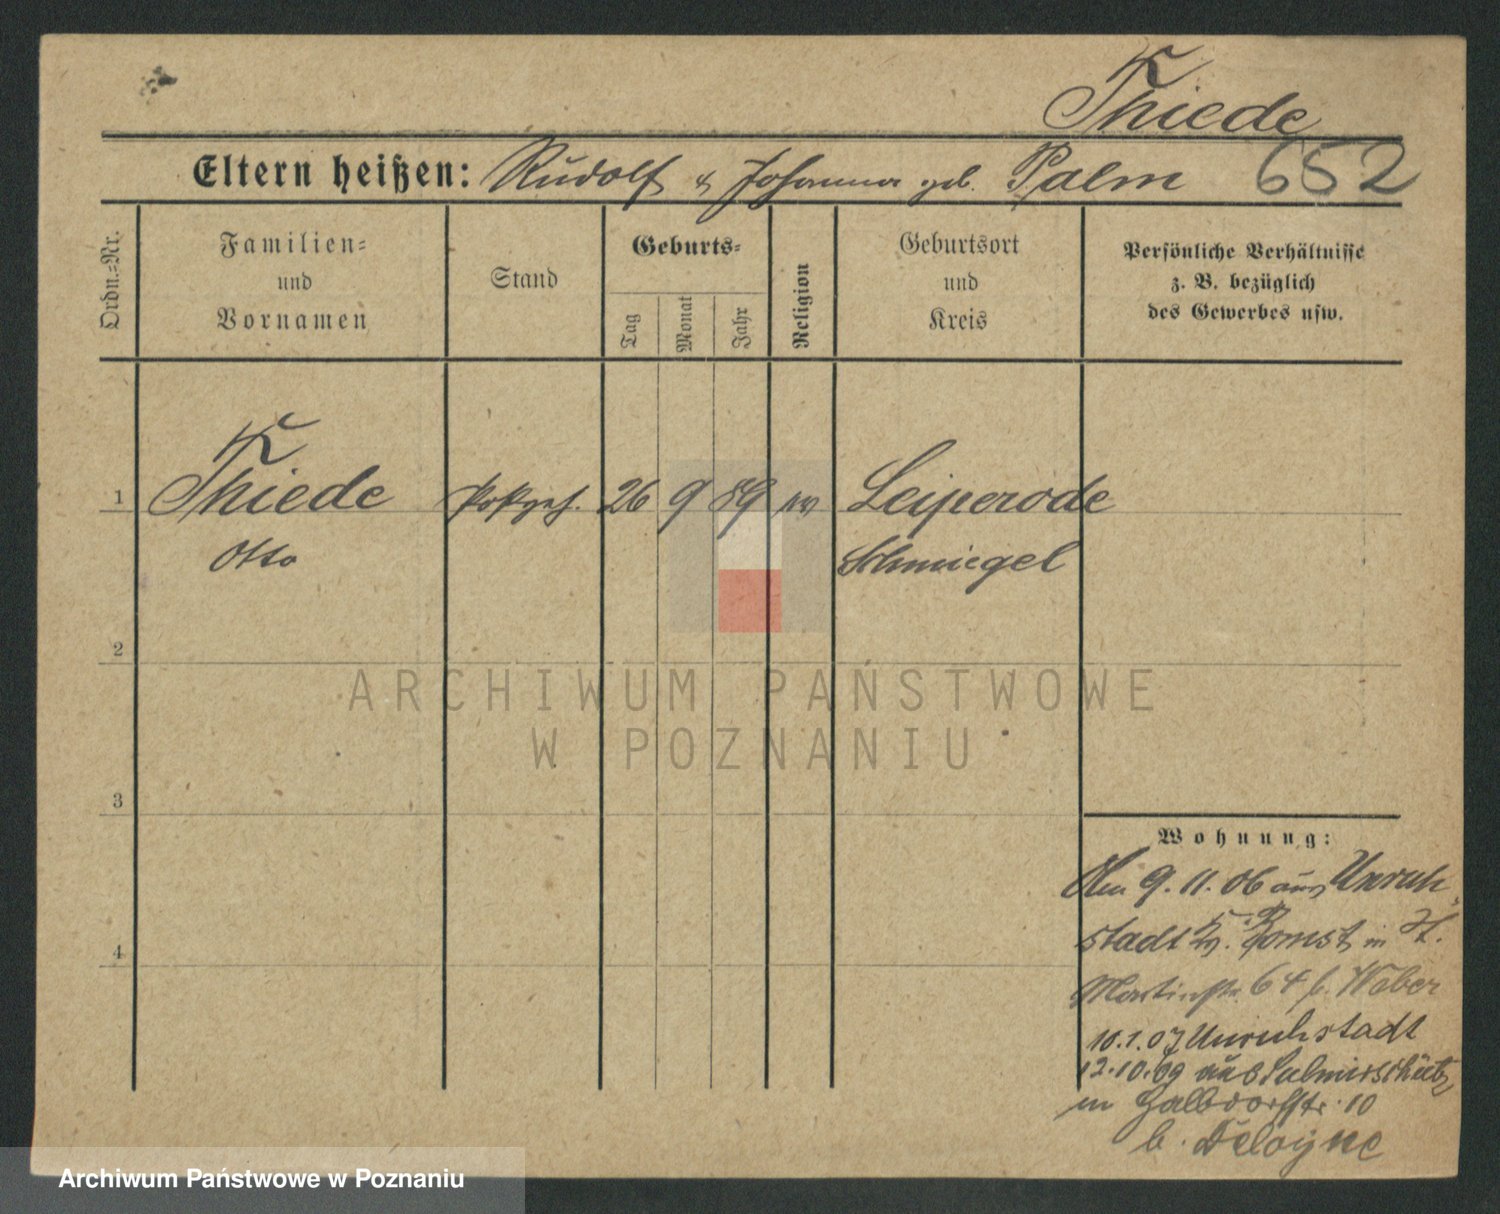 Thiede
Eltern heißen: Rudolf & Johanna geb. Palm 652
Ordn.=Nr.
Familien=
und
Vornamen
Stand
Geburts=
Tag
Monat
Jahr
Religion
Geburtsort
und
Kreis
Persönliche Verhältnisse
z. B. bezüglich
des Gewerbes usw.
1 Thiede 26 9 89 ev Leiperode
Otto Schmiegel
2
3
4
Wohnung:
Am 9. 11. 06 aus Unruh-
stadt Kr. Bomst in St.
Martinstr. 64 b. Weber
10.1.07 Unruhstadt
12.10.09 aus
in Halbdorfstr. 10
b.
ARCHIWUM PAŃSTWOWE
W POZNANIU
Archiwum Państwowe w Poznaniu